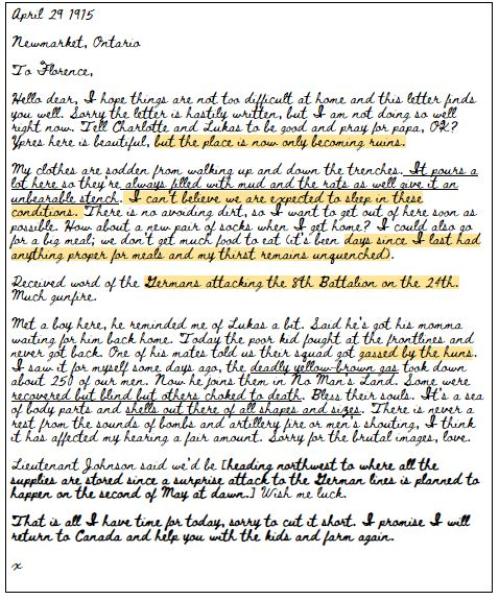 April 29 1915
Newmarket, Ontario
To Florence,
Hello dear, I hope things are not too difficult at home and this letter finds
you well. Sorry the letter is hastily written, but I am not doing so well
right now. Tell Charlotte and Lukas to be good and pray for papa, OK?
Ypres here is beautiful, but the place is now only becoming ruins.
My clothes are sodden from walking up and down the trenches. It pours a
lot here so they're always filled with mud and the rats as well give it an
unbearable stench. I can't believe we are expected to sleep in these
conditions. There is no avoiding dirt, so I want to get out of here soon as
possible. How about a new pair of socks when I get home? I could also go
for a big meal; we don't get much food to eat (it's been days since I last had
anything proper for meals and my thirst remains unquenched).
Received word of the Germans attacking the 8th Battalion on the 24th.
Much gunfire.
Met a boy here, he reminded me of Lukas a bit. Said he's got his momma
waiting for him back home. Today the poor kid fought at the frontlines and
never got back. One of his mates told us their squad got gassed by the huns.
I saw it for myself some days ago, the deadly yellow-brown gas took down
about 250 of our men. Now he joins them in No Man's Land. Some were
recovered but blind but others choked to death. Bless their souls. It's a sea
of body parts and shells out there of all shapes and sizes. There is never a
rest from the sounds of bombs and artillery fire or men's shouting, I think
it has affected my hearing a fair amount. Sorry for the brutal images, love.
Lieutenant Johnson said we'd be [heading northwest to where all the
supplies are stored since a surprise attack to the German lines is planned to
happen on the second of May at dawn.] Wish me luck.
That is all I have time for today, sorry to cut it short. I promise I will
return to Canada and help you with the kids and farm again.
x